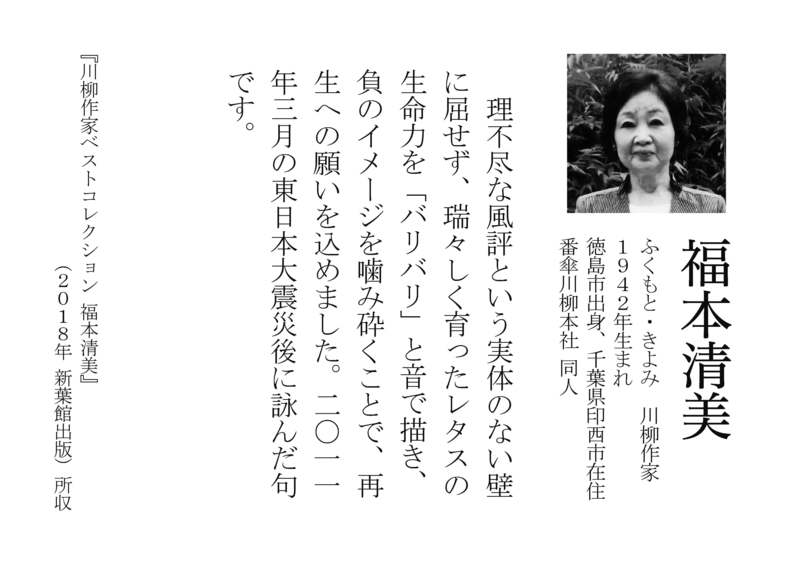 福本清美
ふくもと・きよみ　川柳作家
１９４２年生まれ
徳島市出身、千葉県印西市在住
番傘川柳本社 同人
理不尽な風評という実体のない壁
に屈せず、瑞々しく育ったレタスの
生命力を「バリバリ」と音で描き、
負のイメージを噛み砕くことで、再
生への願いを込めました。二〇一一
年三月の東日本大震災後に詠んだ句
です。
『川柳作家ベストコレクション 福本清美』
（２０１８年 新葉館出版）所収